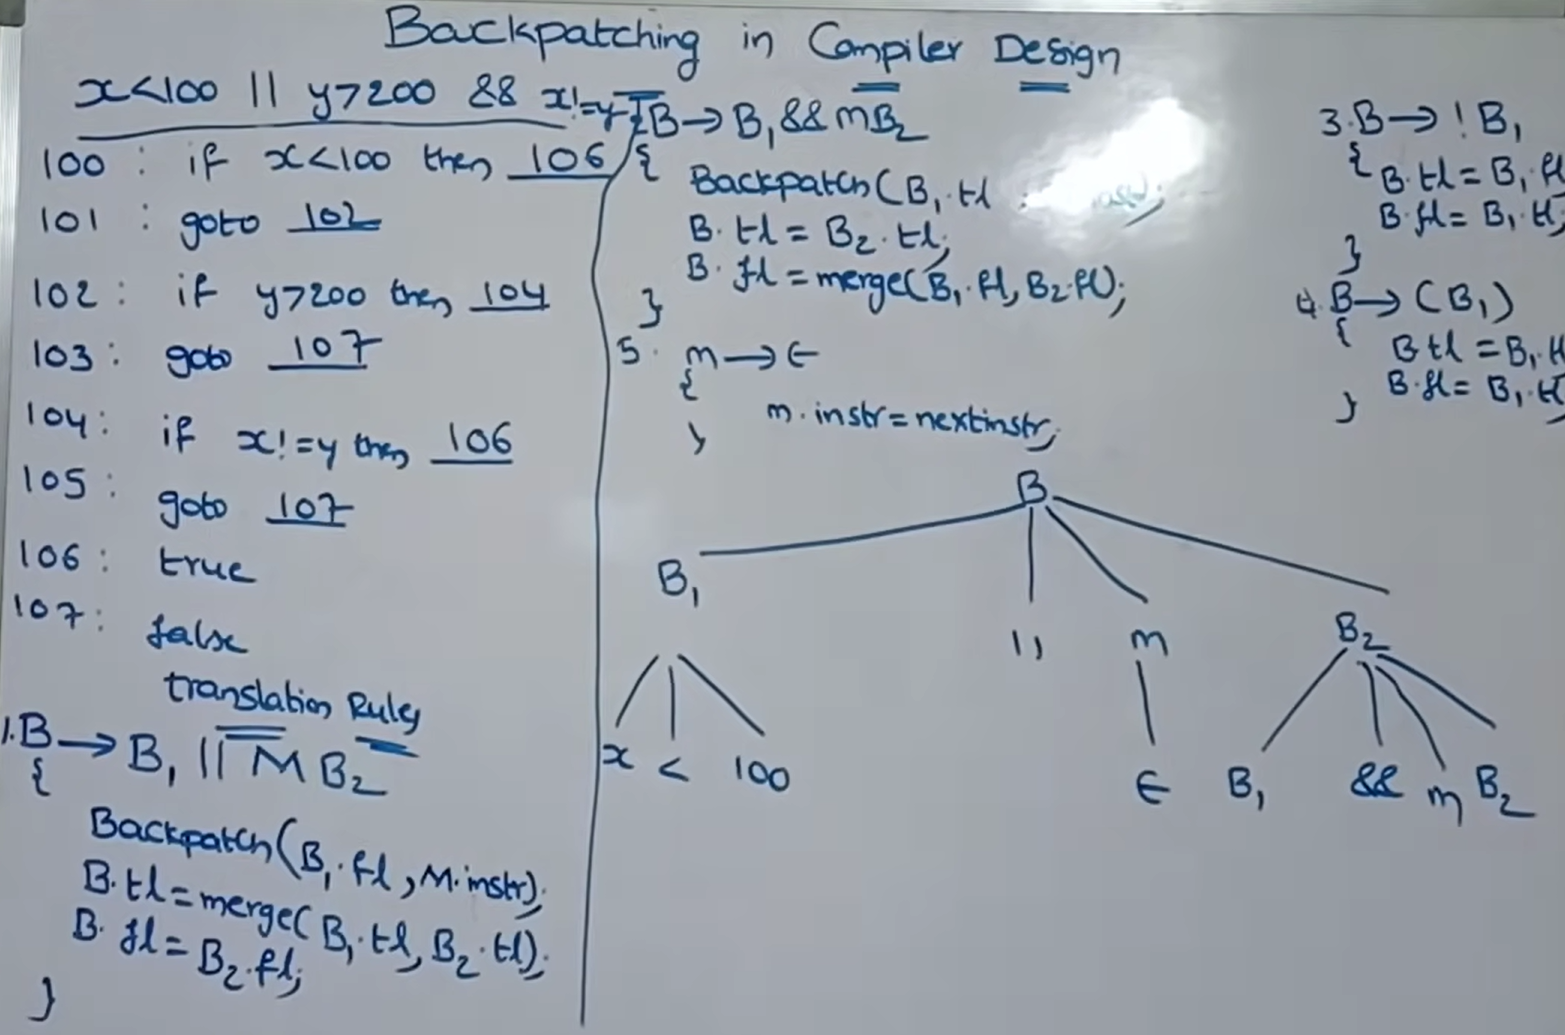 Backpatching in Compiler Design
x<100 || y>200 && x!=y
100 : if x<100 then 106
101 : goto 102
102 : if y>200 then 104
103 : goto 107
104 : if x!=y then 106
105 : goto 107
106 : true
107 : false
translation Rules
1. B → B₁ || M B₂
{
Backpatch(B₁.fl, M.instr);
B.tl = merge(B₁.tl, B₂.tl);
B.fl = B₂.fl;
}
2. B → B₁ && m B₂
{
Backpatch(B₁.tl
B.tl = B₂.tl;
B.fl = merge(B₁.fl, B₂.fl);
}
5. m → ϵ
{
m.instr = nextinstr;
}
3. B → ! B₁
{
B.tl = B₁.fl
B.fl = B₁.tl;
}
4. B → (B₁)
{
B.tl = B₁.tl
B.fl = B₁.tl
}
B
B₁ || m B₂
x < 100 ϵ B₁ && m B₂